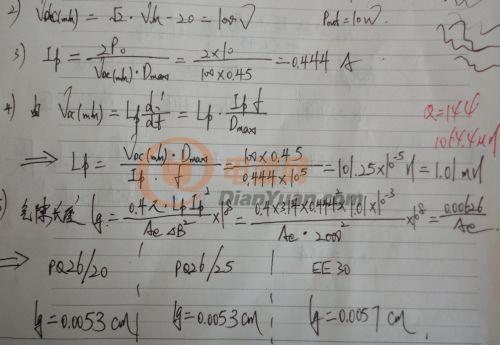 2) Vdc(min) = √2 · Vin - 20 = 100V Pout = 10W
3) Ip = 2P₀ / Vdc(min) · Dmax = 2×10 / 100×0.45 = 0.444 A
4) 由 Vdc(min) = Lp di/dt = Lp · Ip f / Dmax
Q=144
1064.4uH
⇒ Lp = Vdc(min) · Dmax / Ip · f = 100×0.45 / 0.444×10⁵ = 101.25×10⁻⁵ H = 1.01 mH
DianYuan.com
5) 气隙长度 lg = 0.4π · Lp Ip² / Ae ΔB² ×10⁸ = 0.4×3.14×0.444²×1.01×10⁻³ / Ae · 2000² ×10⁸ = 0.00626 / Ae
⇒ PQ26/20 PQ26/25 EE30
lg=0.0053 cm lg=0.0053 cm lg=0.0057 cm